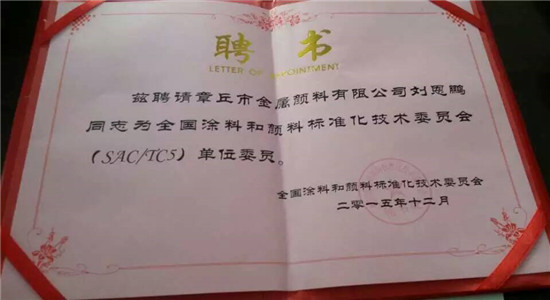 聘书
LETTER OF APPOINTMENT
兹聘请章丘市金属颜料有限公司刘恩鹏
同志为全国涂料和颜料标准化技术委员会
（SAC/TC5）单位委员。
全国涂料和颜料标准化技术委员会
二零一五年十二月